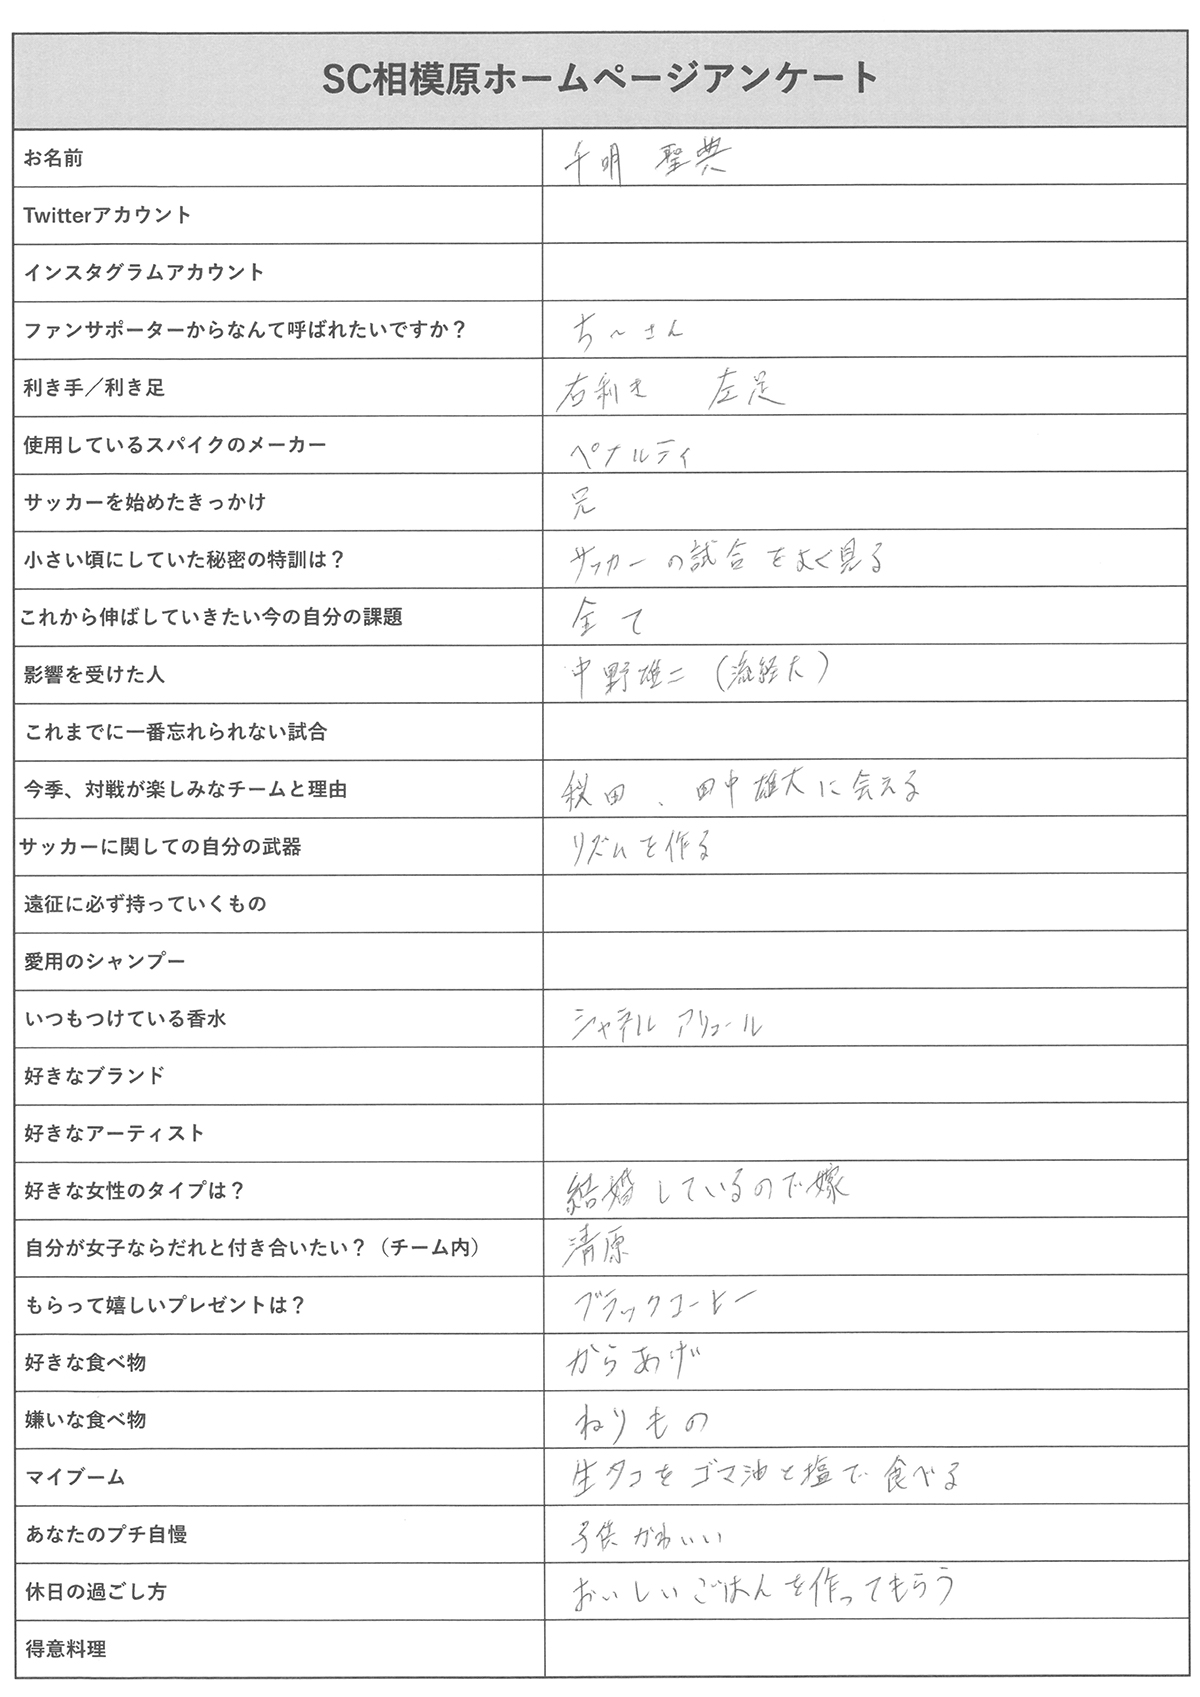 SC相模原ホームページアンケート
お名前 千明 聖典
Twitterアカウント
インスタグラムアカウント
ファンサポーターからなんて呼ばれたいですか？ ち〜さん
利き手／利き足 右利き 左足
使用しているスパイクのメーカー ペナルティ
サッカーを始めたきっかけ 兄
小さい頃にしていた秘密の特訓は？ サッカーの試合をよく見る
これから伸ばしていきたい今の自分の課題 全て
影響を受けた人 中野雄二（流経大）
これまでに一番忘れられない試合
今季、対戦が楽しみなチームと理由 秋田、田中雄大に会える
サッカーに関しての自分の武器 リズムを作る
遠征に必ず持っていくもの
愛用のシャンプー
いつもつけている香水 シャネル アリュール
好きなブランド
好きなアーティスト
好きな女性のタイプは？ 結婚しているので嫁
自分が女子ならだれと付き合いたい？（チーム内） 清原
もらって嬉しいプレゼントは？ ブラックコーヒー
好きな食べ物 からあげ
嫌いな食べ物 ねりもの
マイブーム 生タコをゴマ油と塩で食べる
あなたのプチ自慢 子供かわいい
休日の過ごし方 おいしいごはんを作ってもらう
得意料理